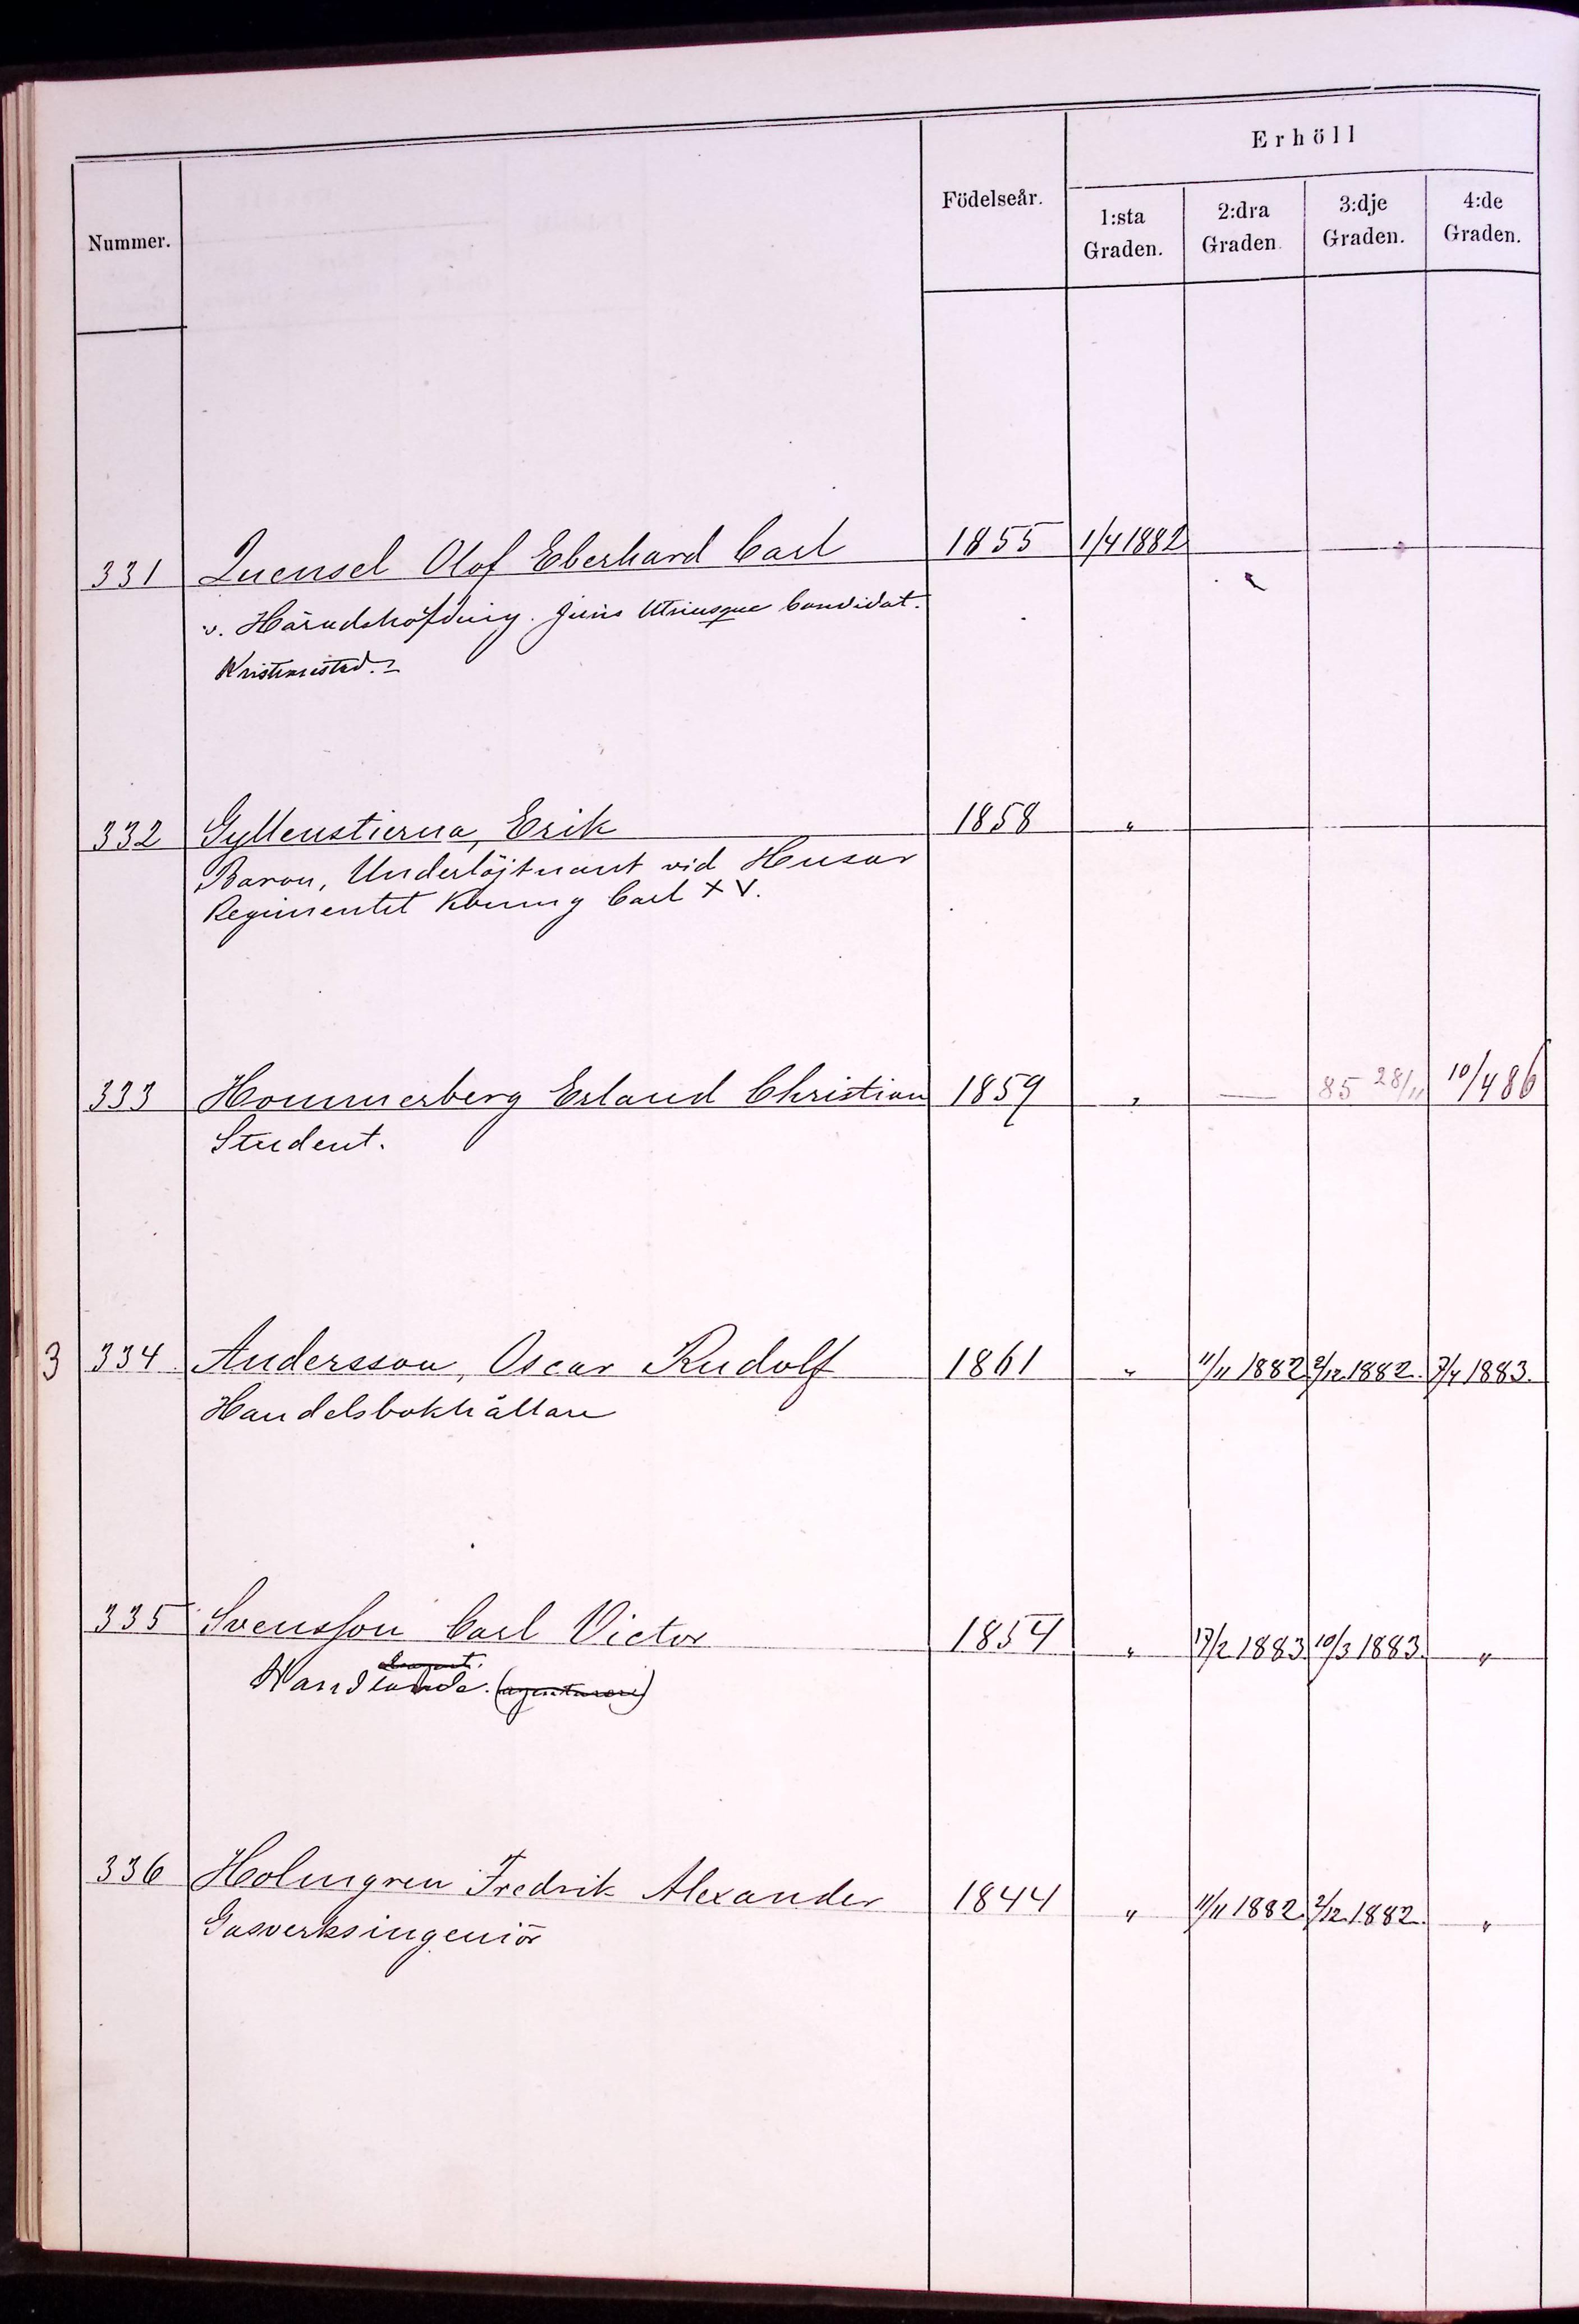 Erhöll
Nummer.
Födelseår.
1:sta Graden.
2:dra Graden.
3:dje Graden.
4:de Graden.
331 Quensel Olof Eberhard Carl 1855 1/4 1882
v. Häradshöfding. Juris Utriusque Candidat.
Kristianstad.
332 Gyllenstierna, Erik 1858 "
Baron, Underlöjtnant vid Husar
Regimentet Konung Carl XV.
333 Hommerberg Erland Christian 1859 " — 85 28/11 10/4 86
Student.
3 334 Andersson, Oscar Rudolf 1861 " 11/11 1882 2/12 1882. 7/4 1883.
Handelsbokhållare
335 Svensson Carl Victor 1854 " 17/2 1883 10/3 1883. "
Handlande.
336 Holmgren Fredrik Alexander 1844 " 11/11 1882. 2/12 1882. "
Gasverksingeniör